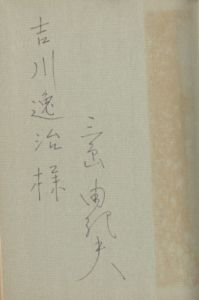 吉川逸治様
三島由紀夫